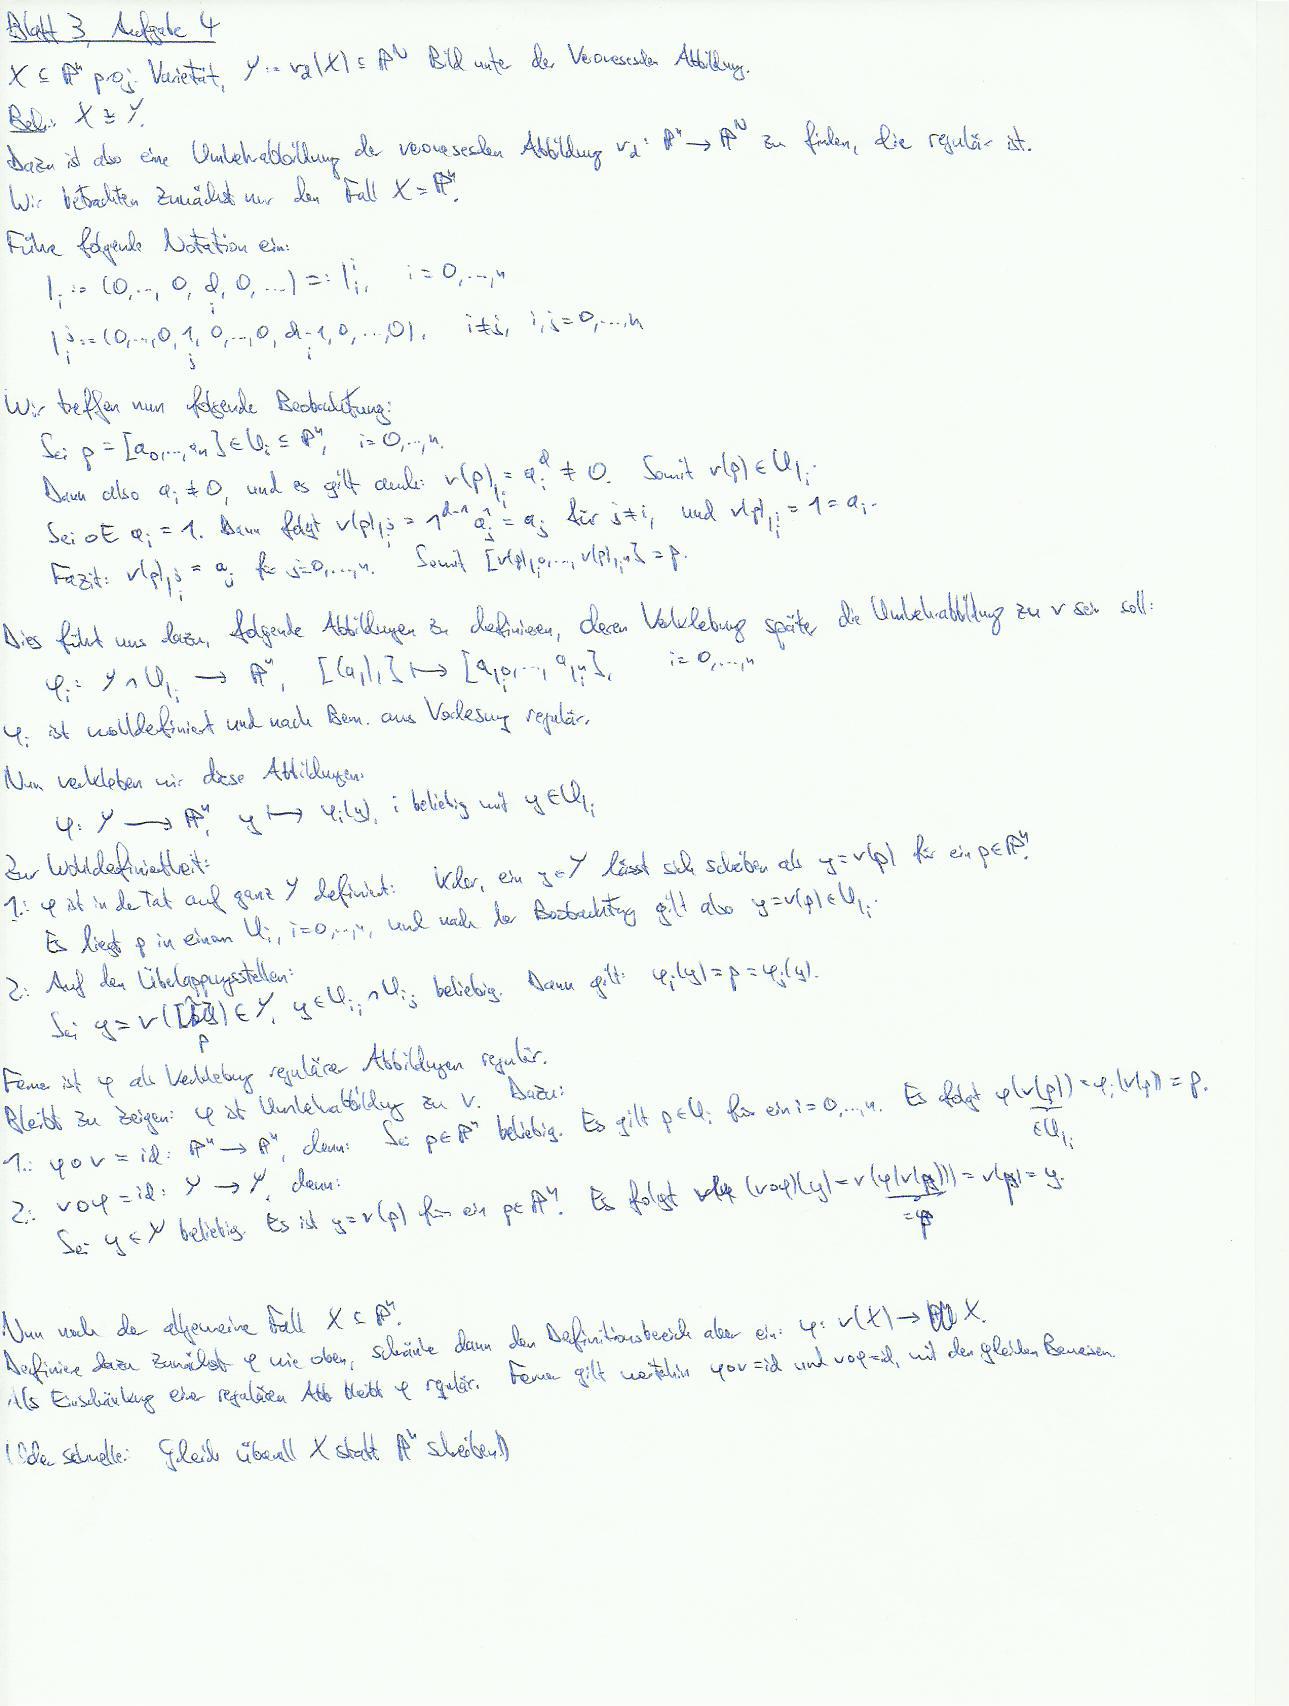 Blatt 3, Aufgabe 4
X ⊆ ℙⁿ proj. Varietät, Y := v_d(X) ⊆ ℙᴺ Bild unter der Veroneseschen Abbildung.
Beh.: X ≅ Y.
Dazu ist also eine Umkehrabbildung der veroneseschen Abbildung v_d: ℙⁿ → ℙᴺ zu finden, die regulär ist.
Wir betrachten zunächst nur den Fall X = ℙⁿ.
Führe folgende Notation ein:
I_i := (0,..., 0, d, 0, ...) =: I_i^i, i = 0,...,n
i
I_i^j := (0,...,0, 1, 0,...,0, d-1, 0,...,0), i≠j, i,j = 0,...,n
j i
Wir treffen nun folgende Beobachtung:
Sei p = [a_0,...,a_n] ∈ U_i ⊆ ℙⁿ, i=0,...,n.
Dann also a_i ≠ 0, und es gilt auch: v(p)_{I_i} = a_i^d ≠ 0. Somit v(p) ∈ U_{I_i}.
Sei oE a_i = 1. Dann folgt v(p)_{I_i^j} = 1^{d-1} a_j^1 = a_j für j≠i, und v(p)_{I_i^i} = 1 = a_i.
Fazit: v(p)_{I_i^j} = a_j für j=0,...,n. Somit [v(p)_{I_i^0},..., v(p)_{I_i^n}] = p.
Dies führt uns dazu, folgende Abbildungen zu definieren, deren Verklebung später die Umkehrabbildung zu v sein soll:
φ_i: Y ∩ U_{I_i} → ℙⁿ, [(a_I)_I] ↦ [a_{I_i^0},..., a_{I_i^n}], i=0,...,n
φ_i ist wohldefiniert und nach Bem. aus Vorlesung regulär.
Nun verkleben wir diese Abbildungen:
φ: Y → ℙⁿ, y ↦ φ_i(y), i beliebig mit y ∈ U_{I_i}
Zur Wohldefiniertheit:
1.: φ ist in der Tat auf ganz Y definiert: Klar, ein y∈Y lässt sich schreiben als y = v(p) für ein p∈ℙⁿ.
Es liegt p in einem U_i, i=0,...,n, und nach der Beobachtung gilt also y=v(p) ∈ U_{I_i}.
2.: Auf den Überlappungsstellen:
Sei y = v(p) ∈ Y, y ∈ U_{I_i} ∩ U_{I_j} beliebig. Dann gilt: φ_i(y) = p = φ_j(y).
Ferner ist φ als Verklebung regulärer Abbildungen regulär.
Bleibt zu zeigen: φ ist Umkehrabbildung zu v. Dazu:
1.: φ∘v = id: ℙⁿ → ℙⁿ, denn: Sei p∈ℙⁿ beliebig. Es gilt p∈U_i für ein i=0,...,n. Es folgt φ(v(p)) = φ_i(v(p)) = p.
∈U_{I_i}
2.: v∘φ = id: Y → Y, denn:
Sei y ∈ Y beliebig. Es ist y = v(p) für ein p∈ℙⁿ. Es folgt (v∘φ)(y) = v(φ(v(p))) = v(p) = y.
= p
Nun noch der allgemeine Fall X ⊆ ℙⁿ.
Definiere dazu zunächst φ wie oben, schränke dann den Definitionsbereich aber ein: φ: v(X) → X.
Als Einschränkung einer regulären Abb bleibt φ regulär. Ferner gilt weiterhin φ∘v = id und v∘φ=id, mit den gleichen Beweisen.
(Oder schneller: Gleich überall X statt ℙⁿ schreiben!)